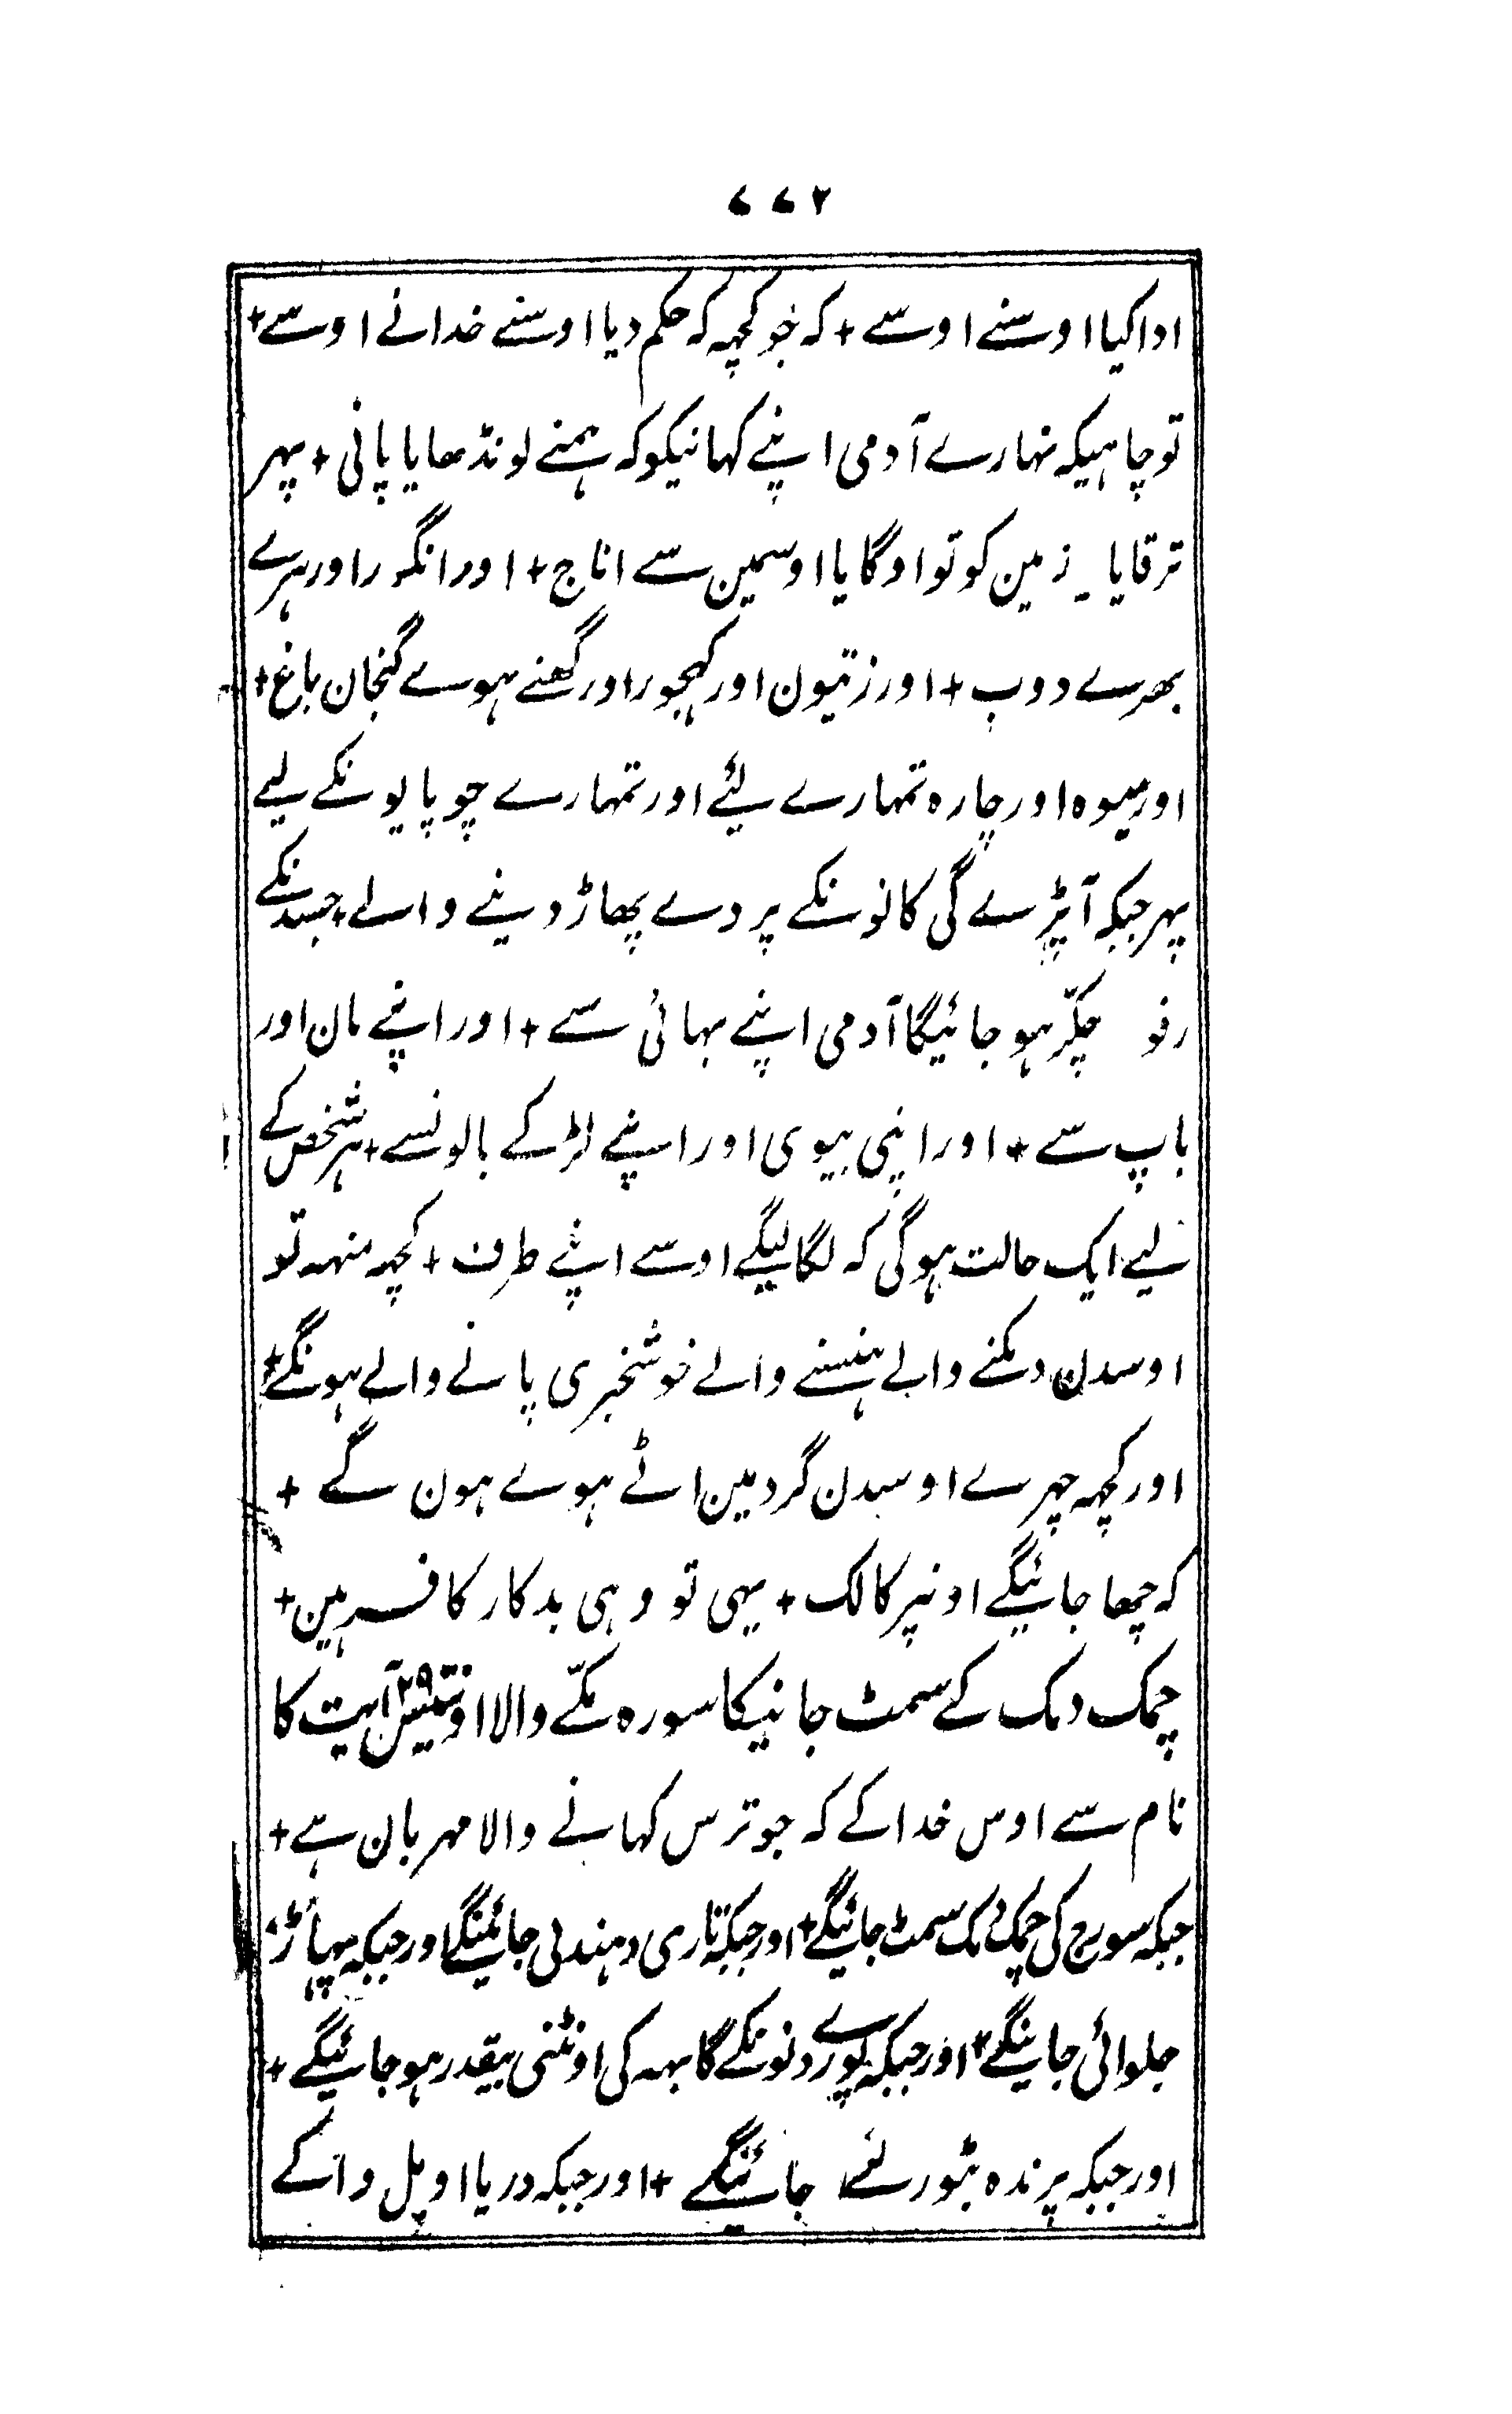 ۷۷۲
ادا کیا اوسنے اوسے + کہ جو کچہہ کہ حکم دیا اوسنے خدانے اوسے +
تو چاہیکہ تمہارے آدمی اپنے کہانیکو کہ ہمنے لونڈھایا پانی + پہر
ترقایا زمین کو تو اوگایا اوسمین سے اناج + اور انگور اور ہرے
بھرے دوب + اور زتیون اور کہجور اور گھنے ہوے گنجان باغ +
اور میوہ اور چارہ تمہارے لئے اور تمہارے چوپایونکے لیے
پہر جبکہ آپڑے گی کانونکے پردے پھاڑ دینے والے + جسدنکے
رفو چکّر ہو جائیگا آدمی اپنے بہائی سے + اور اپنے مان اور
باپ سے + اور اپنی بیوی اور اپنے لڑکے بالونسے + ہر شخص کے
لیے ایک حالت ہوگی کہ لگا لیگے اوسے اپنے طرف + کچہہ منہہ تو
اوسدن دمکنے والے ہنسنے والے خوشخبری پانے والے ہونگے +
اور کچہہ چہرے اوسدن گرد مین اٹے ہوے ہون گے +
کہ چھا جائیگے اونپر کالک + یہی تو وہی بدکار کافر ہین +
چمک دمک کے سمٹ جانیکا سورہ مکّے والا اونتیس ۲۹ آیت کا
نام سے اوس خدا کے کہ جو ترس کہانے والا مہربان ہے +
جبکہ سورج کی چمک دمک سمٹ جائیگے + اور جبکہ تاری دہندلی جائینگے اور جبکہ پہاڑ
چلوائی جاینگے + اور جبکہ پورے دنونکے گابہہ کی اونٹنی بیقدر ہو جائیگے +
اور جبکہ پرندہ بٹور لئے جائینگے + اور جبکہ دریا اوبل وا کے